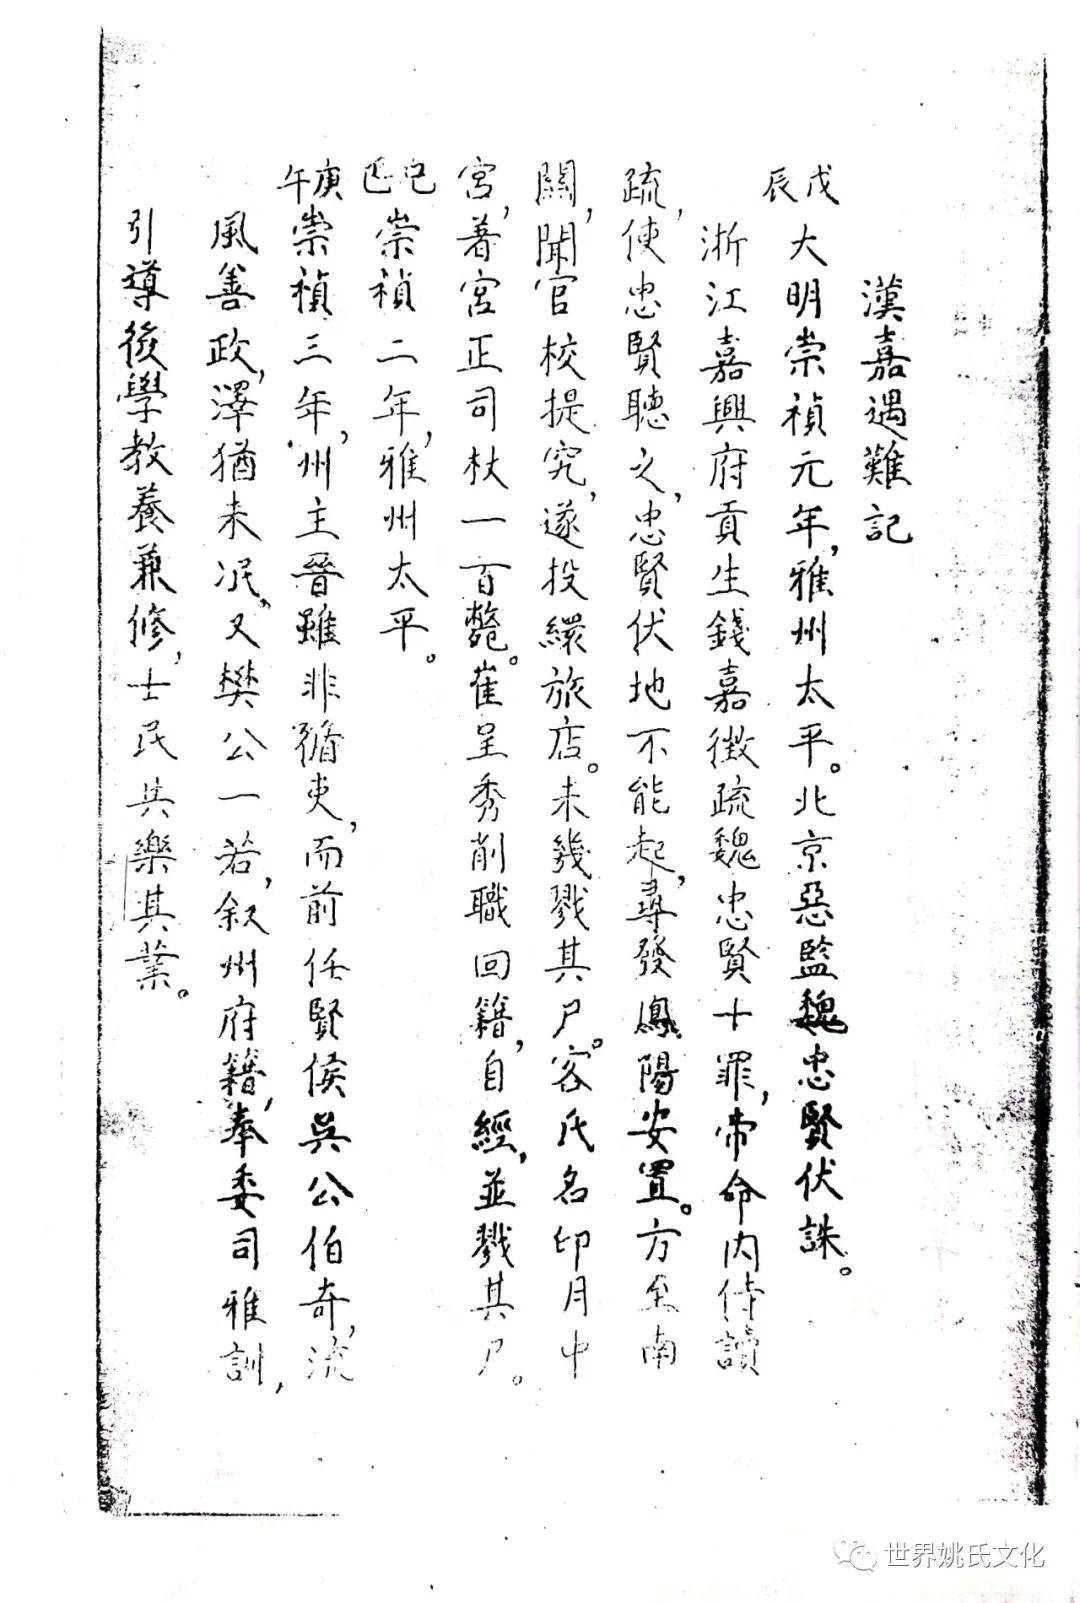 漢嘉遇難記
戊辰
大明崇禎元年,雅州太平。北京惡監魏忠賢伏誅。
浙江嘉興府貢生錢嘉徴疏魏忠賢十罪,帝命内侍讀
疏,使忠賢聽之,忠賢伏地不能起,尋發鳳陽安置。方至南
關,聞官校提究,遂投繯旅店。未幾戮其尸。客氏名印月中
宮,著宮正司杖一百斃。崔呈秀削職回籍,自經,並戮其尸。
己巳崇禎二年,雅州太平。
庚午崇禎三年,州主晉雖非循吏,而前任賢侯吳公伯奇,流
風善政,澤猶未泯,又樊公一若,叙州府籍,奉委司雅訓,
引導後學教養兼修,士民共樂其業。
世界姚氏文化